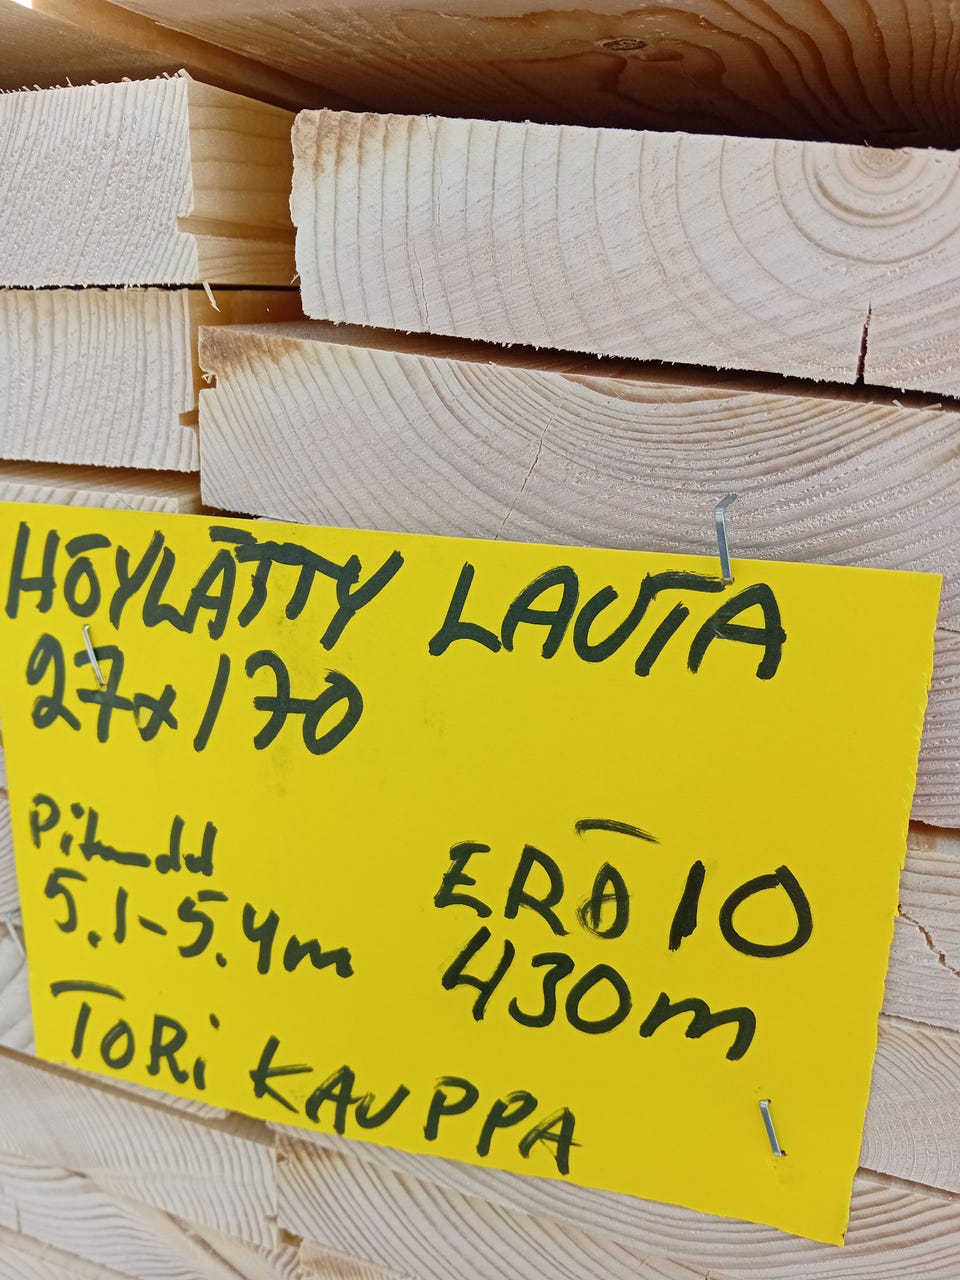 HÖYLÄTTY LAUTA
27x170
Pituudet
5.1-5.4m
ERÄ 10
430m
TORi KAUPPA